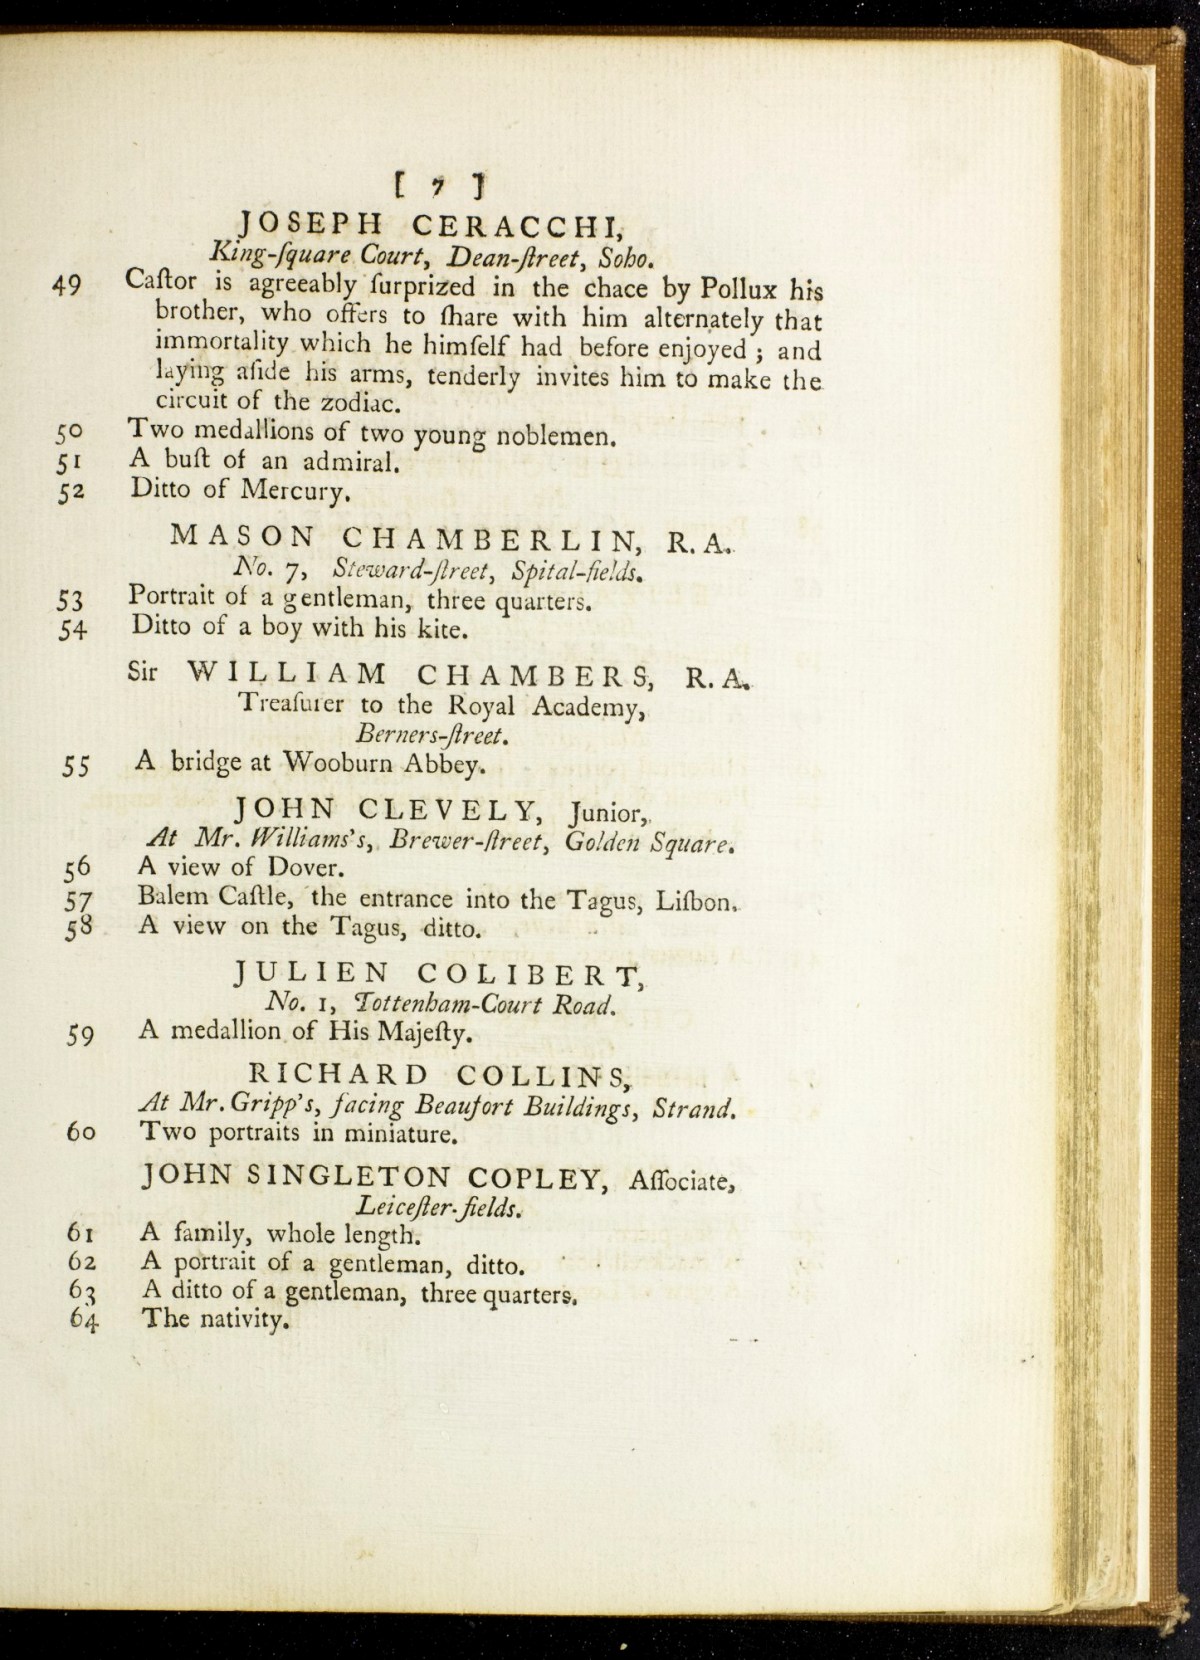 [ 7 ]
JOSEPH CERACCHI,
King-ſquare Court, Dean-ſtreet, Soho.
49 Caſtor is agreeably ſurprized in the chace by Pollux his
brother, who offers to ſhare with him alternately that
immortality which he himſelf had before enjoyed ; and
laying aſide his arms, tenderly invites him to make the
circuit of the zodiac.
50 Two medallions of two young noblemen.
51 A buſt of an admiral.
52 Ditto of Mercury.
MASON CHAMBERLIN, R. A.
No. 7, Steward-ſtreet, Spital-fields.
53 Portrait of a gentleman, three quarters.
54 Ditto of a boy with his kite.
Sir WILLIAM CHAMBERS, R. A.
Treaſurer to the Royal Academy,
Berners-ſtreet.
55 A bridge at Wooburn Abbey.
JOHN CLEVELY, Junior,
At Mr. Williams's, Brewer-ſtreet, Golden Square.
56 A view of Dover.
57 Balem Caſtle, the entrance into the Tagus, Liſbon.
58 A view on the Tagus, ditto.
JULIEN COLIBERT,
No. 1, Tottenham-Court Road.
59 A medallion of His Majeſty.
RICHARD COLLINS,
At Mr. Gripp's, facing Beaufort Buildings, Strand.
60 Two portraits in miniature.
JOHN SINGLETON COPLEY, Aſſociate,
Leiceſter-fields.
61 A family, whole length.
62 A portrait of a gentleman, ditto.
63 A ditto of a gentleman, three quarters.
64 The nativity.